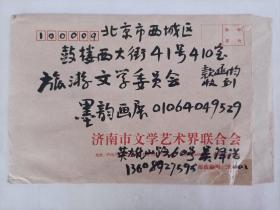 100009
北京市西城区
鼓楼西大街41号410室
旅游文学委员会 敬函收
墨韵画展 01064049529
济南市文学艺术界联合会
英雄山路60号吴泽浩
13608927595